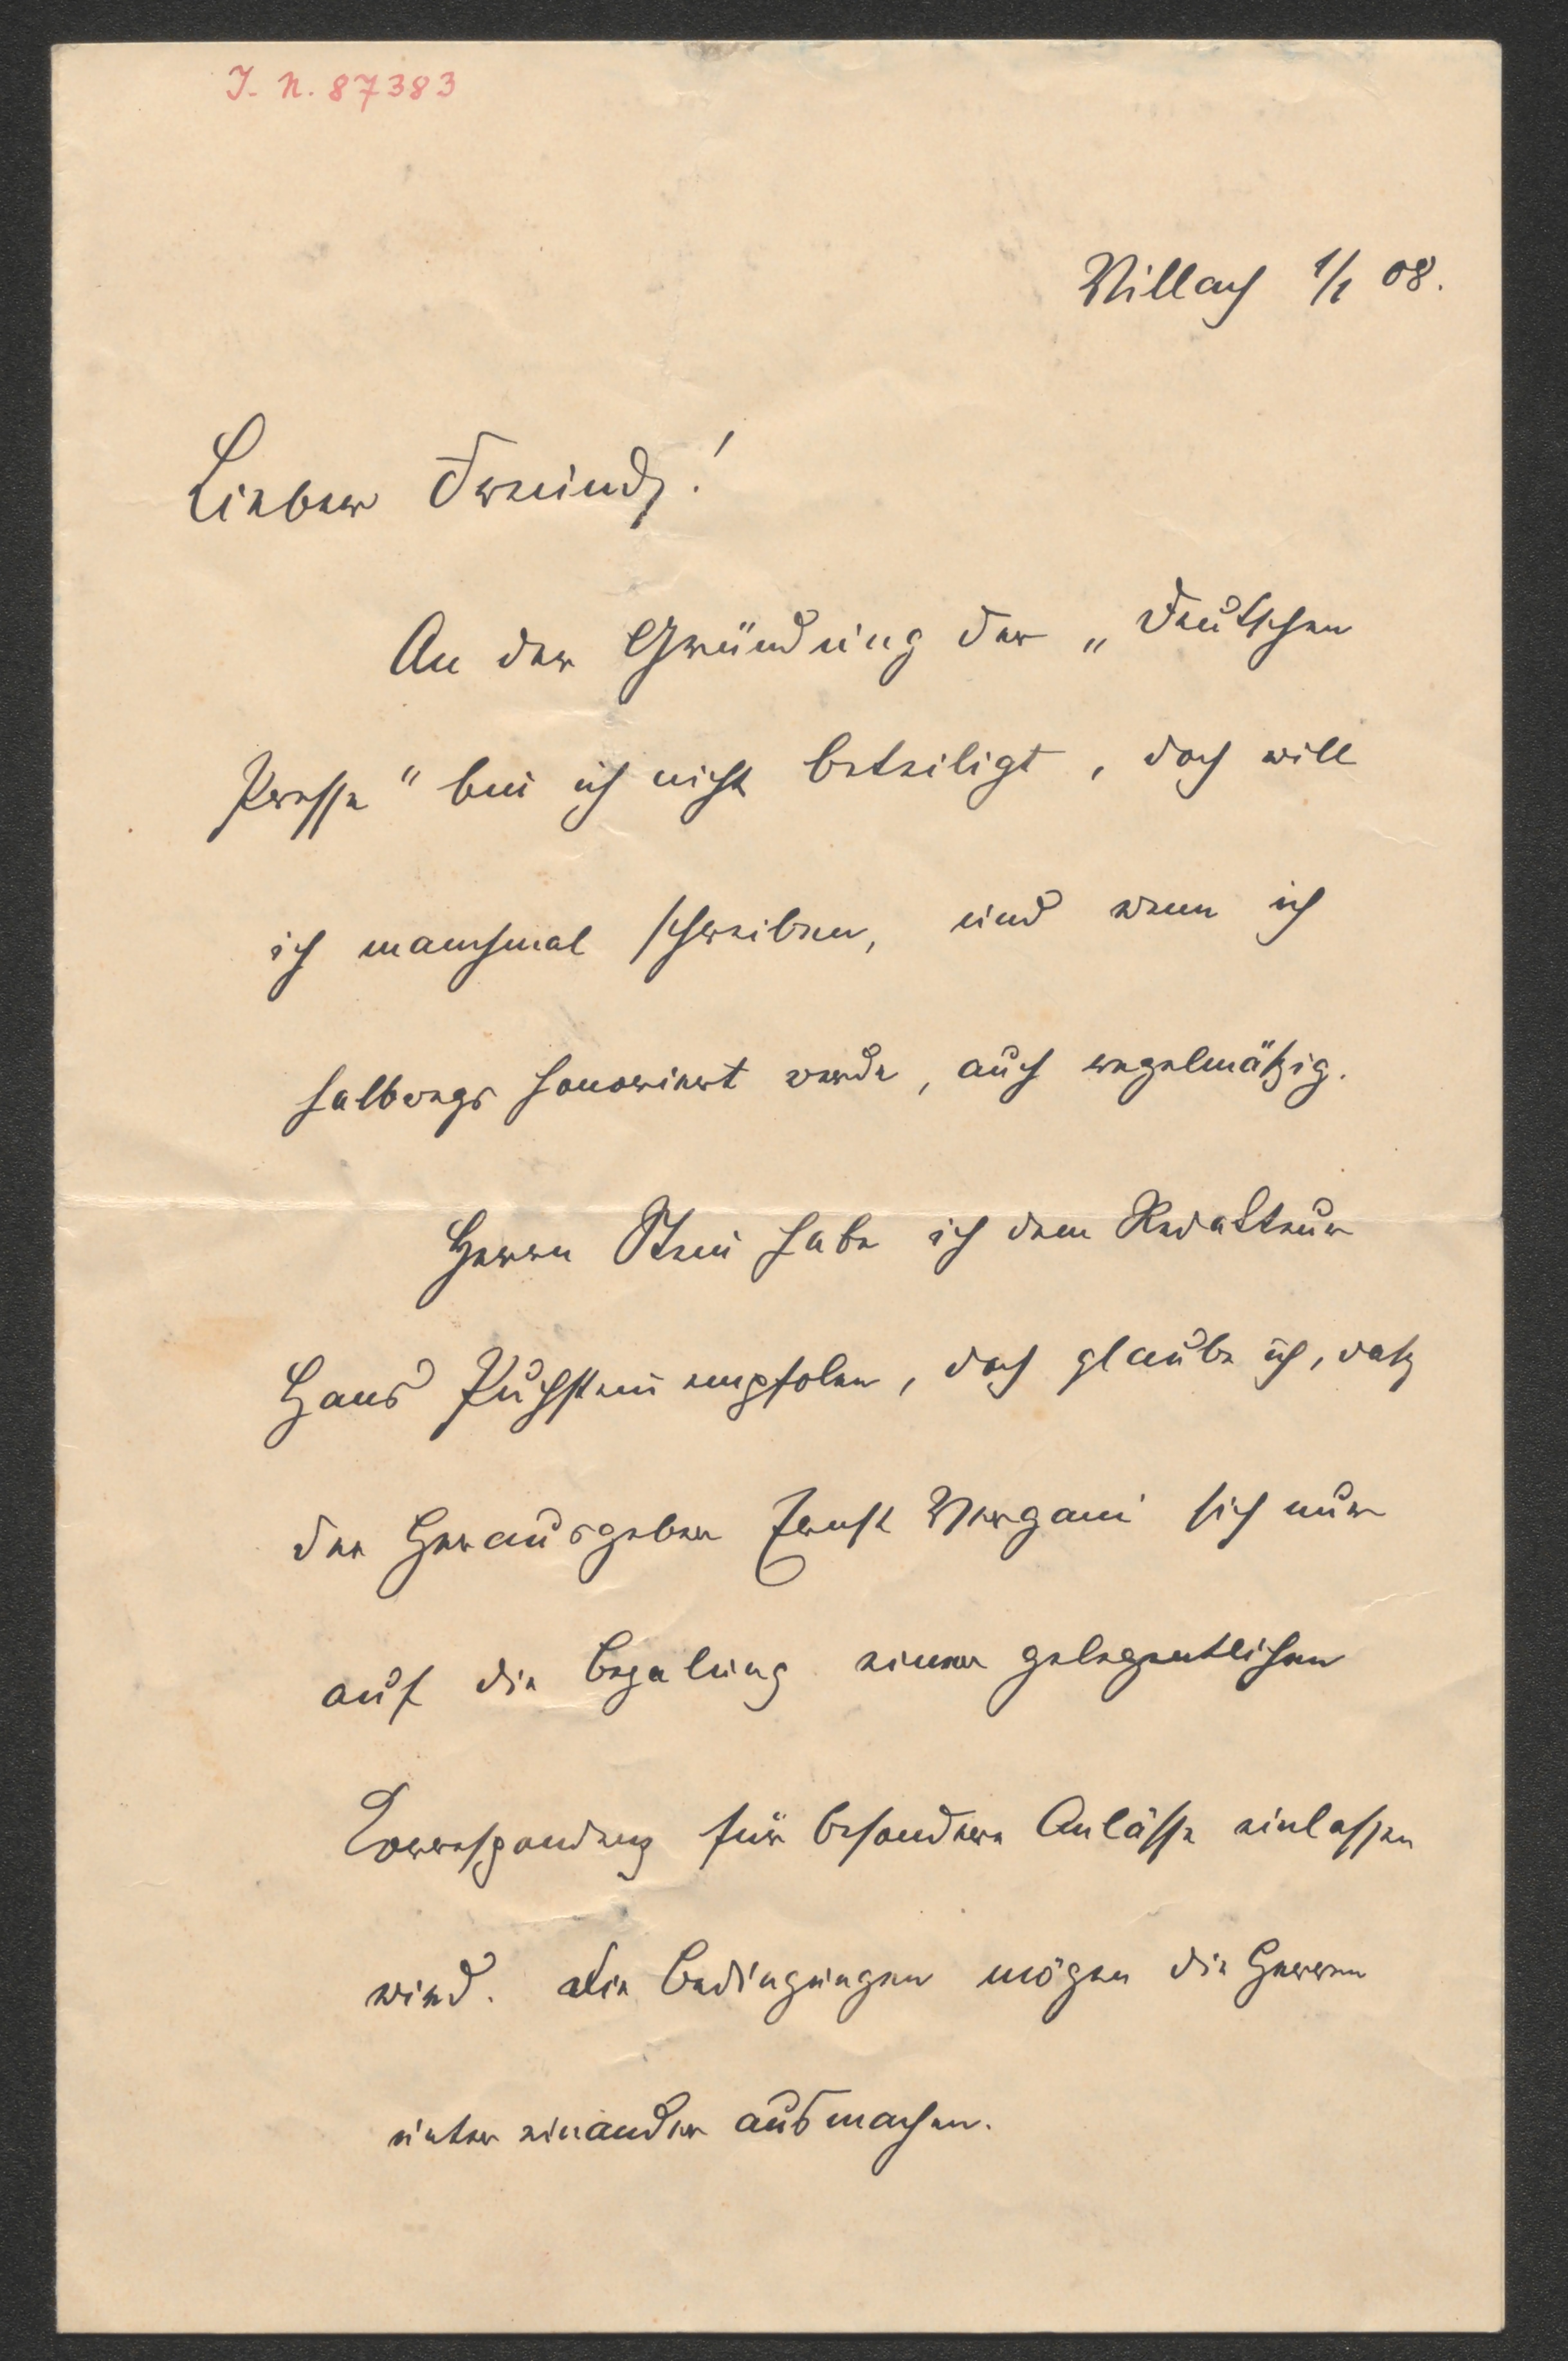 I. N. 87383
Villach 1/1 08.
Lieber Freund!
An der Gründung der „Deutschen
Presse" bin ich nicht beteiligt, doch will
ich manchmal schreiben, und wenn ich
halbwegs honoriert werde, auch regelmäßig.
Herrn Stein habe ich dem Redakteur
Hans Puchstein empfolen, doch glaube ich, daß
der Herausgeber Ernst Vergani sich nur
auf die Bezalung einer gelegentlichen
Correspondenz für besondere Anlässe einlassen
wird. Die Bedingungen mögen die Herren
unter einander ausmachen.